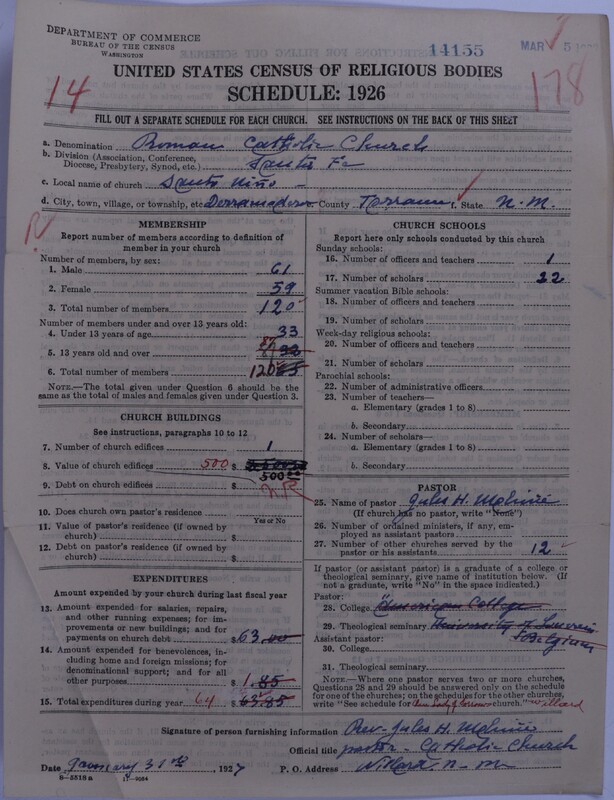 DEPARTMENT OF COMMERCE
BUREAU OF THE CENSUS
WASHINGTON
14155
MAR 5
UNITED STATES CENSUS OF RELIGIOUS BODIES
SCHEDULE: 1926
14
178
FILL OUT A SEPARATE SCHEDULE FOR EACH CHURCH. SEE INSTRUCTIONS ON THE BACK OF THIS SHEET
a. Denomination Roman Catholic Church
b. Division (Association, Conference, Diocese, Presbytery, Synod, etc.) Santa Fe
c. Local name of church Santo Niño
d. City, town, village, or township, etc. County Torrance f. State N. M.
MEMBERSHIP
Report number of members according to definition of member in your church
Number of members, by sex:
1. Male 61
2. Female 59
3. Total number of members 120
Number of members under and over 13 years old:
4. Under 13 years of age 33
5. 13 years old and over 87
6. Total number of members 120
NOTE.—The total given under Question 6 should be the same as the total of males and females given under Question 3.
CHURCH BUILDINGS
See instructions, paragraphs 10 to 12
7. Number of church edifices 1
8. Value of church edifices 500 $
500 00
9. Debt on church edifices $ NR
10. Does church own pastor's residence
Yes or No
11. Value of pastor's residence (if owned by church) $
12. Debt on pastor's residence (if owned by church) $
EXPENDITURES
Amount expended by your church during last fiscal year
13. Amount expended for salaries, repairs, and other running expenses; for improvements or new buildings; and for payments on church debt $ 63.00
14. Amount expended for benevolences, including home and foreign missions; for denominational support; and for all other purposes $ 1.85
15. Total expenditures during year 64 $
CHURCH SCHOOLS
Report here only schools conducted by this church
Sunday schools:
16. Number of officers and teachers 1
17. Number of scholars 22
Summer vacation Bible schools:
18. Number of officers and teachers
19. Number of scholars
Week-day religious schools:
20. Number of officers and teachers
21. Number of scholars
Parochial schools:
22. Number of administrative officers
23. Number of teachers—
a. Elementary (grades 1 to 8)
b. Secondary
24. Number of scholars—
a. Elementary (grades 1 to 8)
b. Secondary
PASTOR
25. Name of pastor Jules H. Molinié
(If church has no pastor, write "None")
26. Number of ordained ministers, if any, employed as assistant pastors
27. Number of other churches served by the pastor or his assistants 12
If pastor (or assistant pastor) is a graduate of a college or theological seminary, give name of institution below. (If not a graduate, write "No" in the space indicated.)
Pastor:
28. College American College
29. Theological seminary University of Louvain
Belgium
Assistant pastor:
30. College
31. Theological seminary
NOTE.—Where one pastor serves two or more churches, Questions 28 and 29 should be answered only on the schedule for one of the churches; on the schedules for the other churches, write "See schedule for Our Lady of Sorrows church." Willard
Signature of person furnishing information Rev. Jules H. Molinié
Official title pastor - Catholic Church
Date January 31st, 1927 P. O. Address Willard N. M.
8-5519 a
17-9084